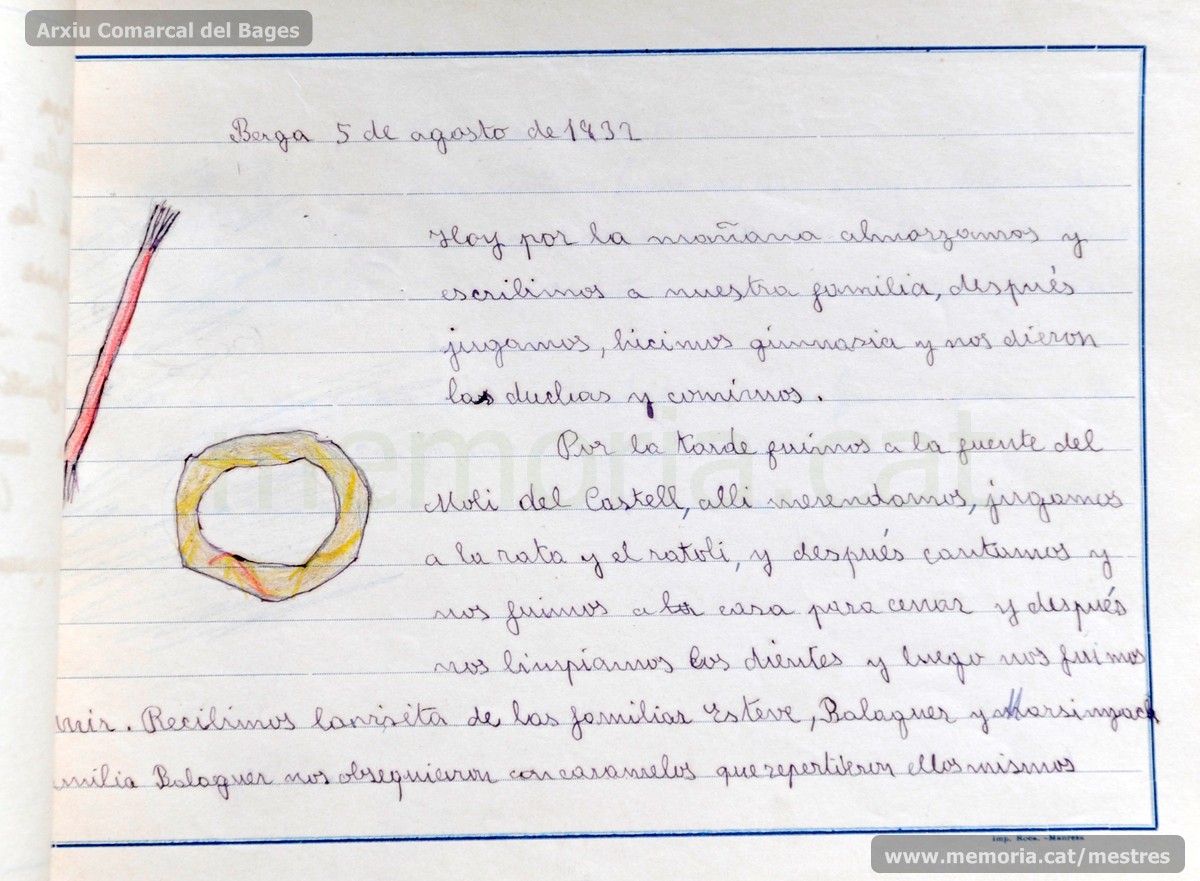 Arxiu Comarcal del Bages
Berga 5 de agosto de 1932
Hoy por la mañana almorzamos y
escribimos a nuestra familia, después
jugamos, hicimos gimnasia y nos dieron
las duchas y comimos.
Por la tarde fuimos a la fuente del
Moli del Castell, alli merendamos, jugamos
a la rata y el ratoli, y después cantamos y
nos fuimos a la casa para cenar y después
nos limpiamos los dientes y luego nos fuimos
mir. Recibimos la visita de las familiar Esteve, Balaguer y
milia Balaguer nos obsequieron con caramelos que repertieron ellos mismos
memoria.cat
Imp. Roca. -Manresa
www.memoria.cat/mestres